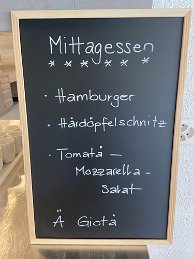 Mittagessen
* * * * * * *
· Hamburger
· Härdöpfelschnitz
· Tomatä –
Mozzarella –
Salat
Ä Guetä